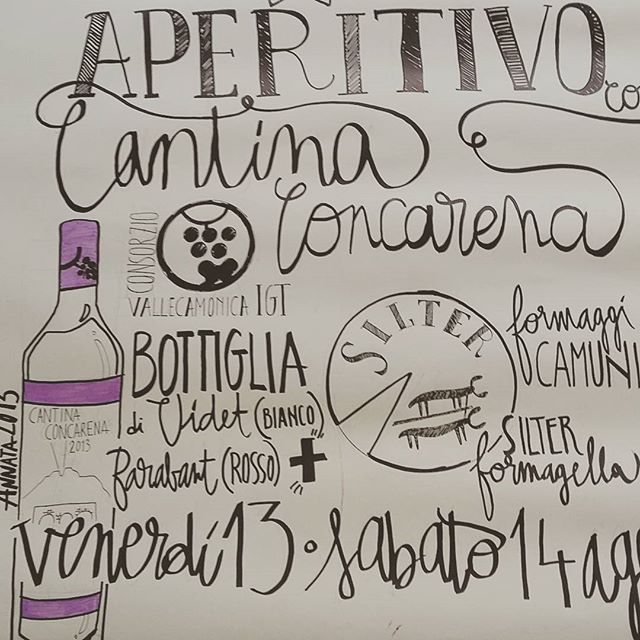 APERITIVO co
Cantina
Concarena
CONSORZIO
VALLECAMONICA IGT
BOTTIGLIA
di Videt (BIANCO)
Barabant (ROSSO) +
ANNATA 2013
CANTINA
CONCARENA
2013
SILTER
formaggi
CAMUNI
SILTER
formagella
venerdí 13 • sabato 14 ag